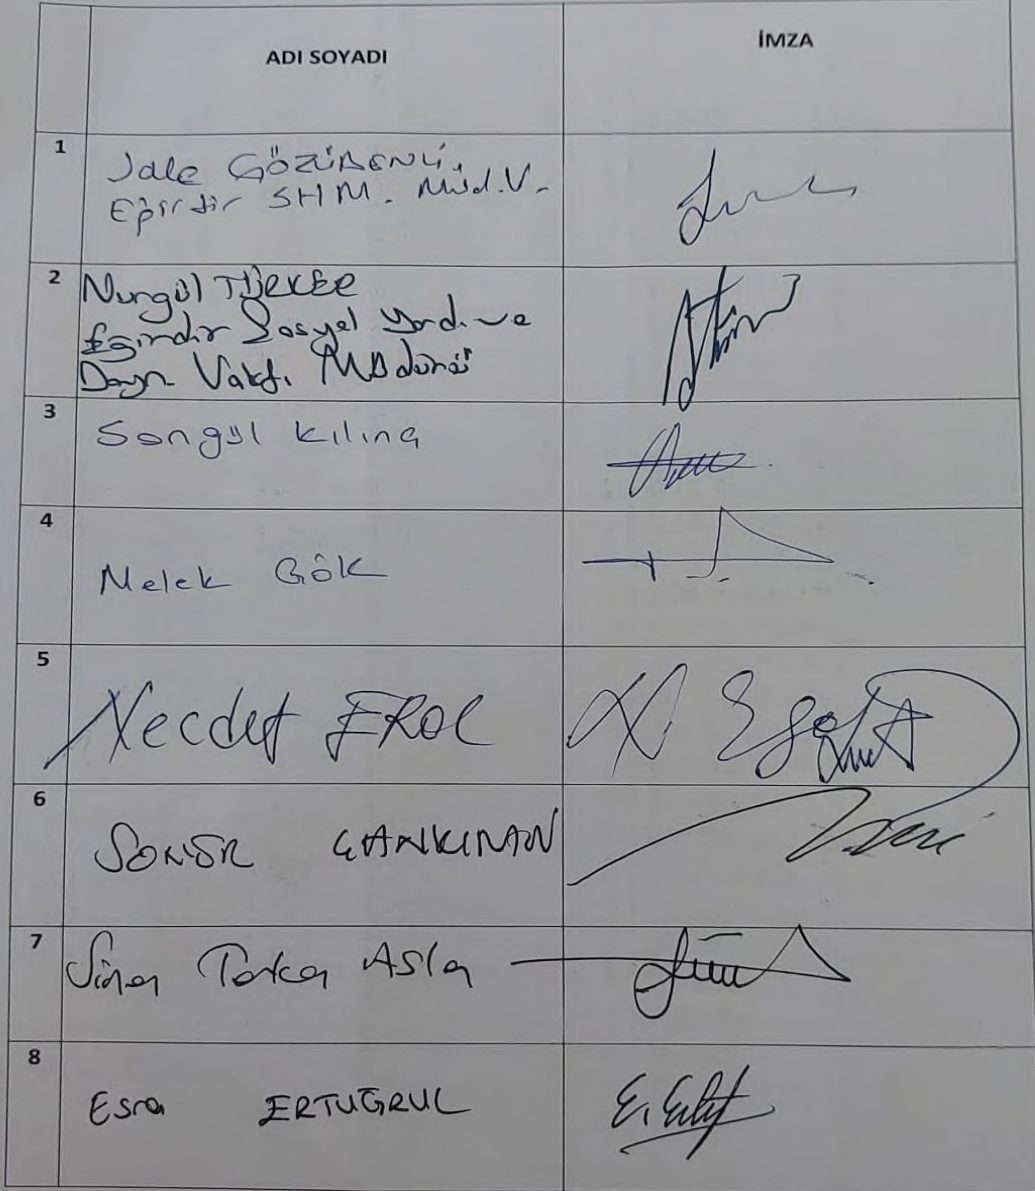 ADI SOYADI
İMZA
1
Jale GÖZÜBENLİ
Eğirdir SHM. Müd.V.
2
Nurgül
Eğirdir Sosyal Yard. ve
Day. Vakfı Müdürü
3
Songül Kılınç
4
Melek Gök
5
Necdet EROL
6
SONER ÇANKINAN
7
Sinan Asla
8
Esra ERTUĞRUL